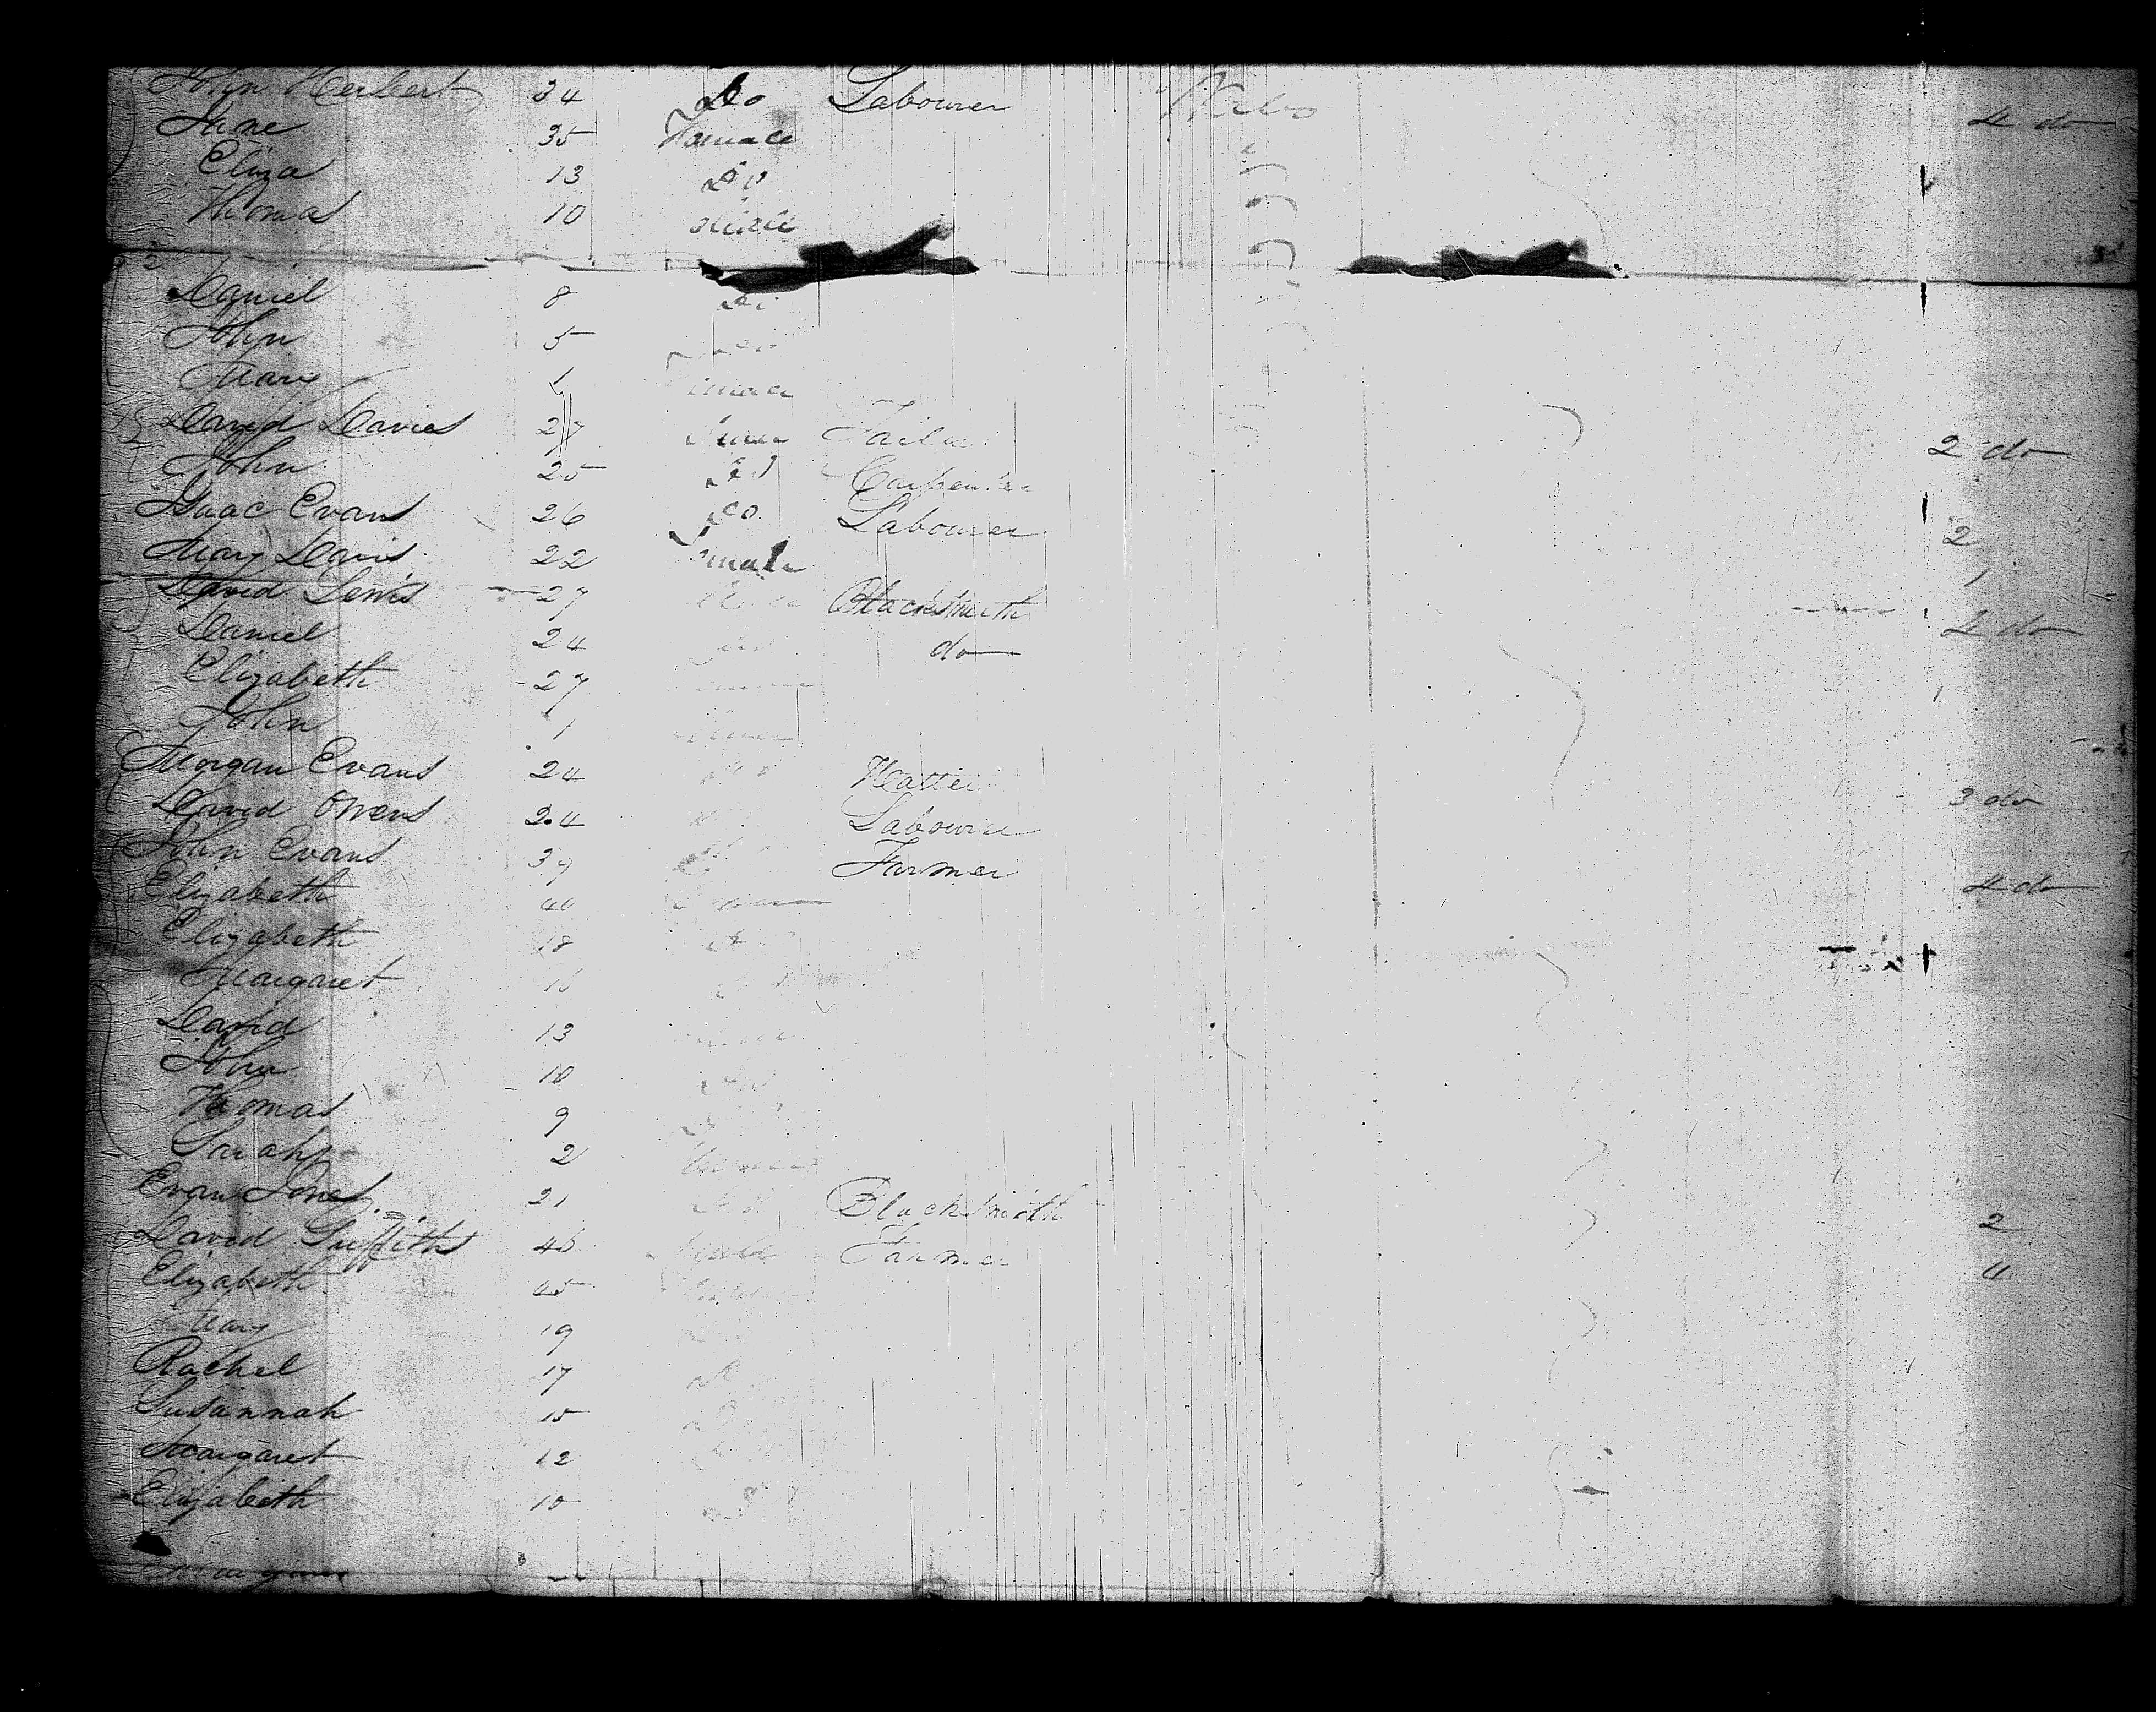 John Herbert 34 Do Labourer Wales 4 do
Jane 35 Female
Eliza 13 Do
Thomas 10 Male
Daniel 8 Do
John 5 Do
Mary 1 Female
David Davies 27 Male Tailor 2 do
John 25 Do Carpenter
Isaac Evans 26 Do Labourer 2
Mary Davis 22 Female 1
David Lewis 27 Male Blacksmith 2 do
Daniel 24 Do do
Elizabeth 27
John 1
Morgan Evans 24 Do Hatter 3 do
David Owens 24 Labourer
John Evans 39 Farmer 4 do
Elizabeth 40
Elizabeth 18
Margaret 16
David 13
John 10
Thomas 9
Sarah 2
Evan Jones 21 Blacksmith 2
David Griffiths 46 Male Farmer 4
Elizabeth 45
Mary 19
Rachel 17 Do
Susannah 15
Margaret 12
Elizabeth 10